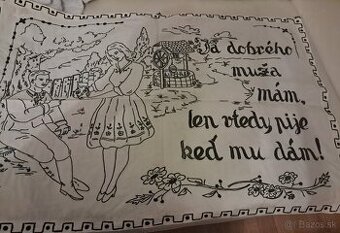 Ja dobrého
muža
mám,
len vtedy pije
keď mu dám!
Bazos.sk